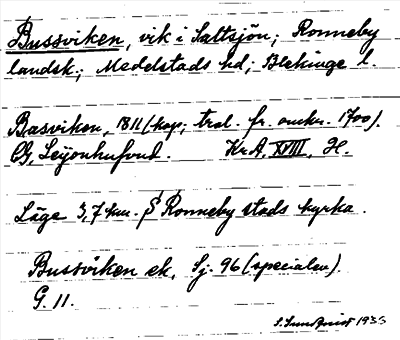 Bussviken, vik i Saltsjön; Ronneby
landsk.; Medelstads hd; Blekinge l.
Basviken, 1811 (kop; trol. fr. omkr. 1700).
CG, Leijonhufvud. Kr.A, XVIII, H.
Läge 3,7 km. S Ronneby stads kyrka.
Bussviken ek, Sj. 96 (specialen).
G. 11.
S. Sundqvist 1935